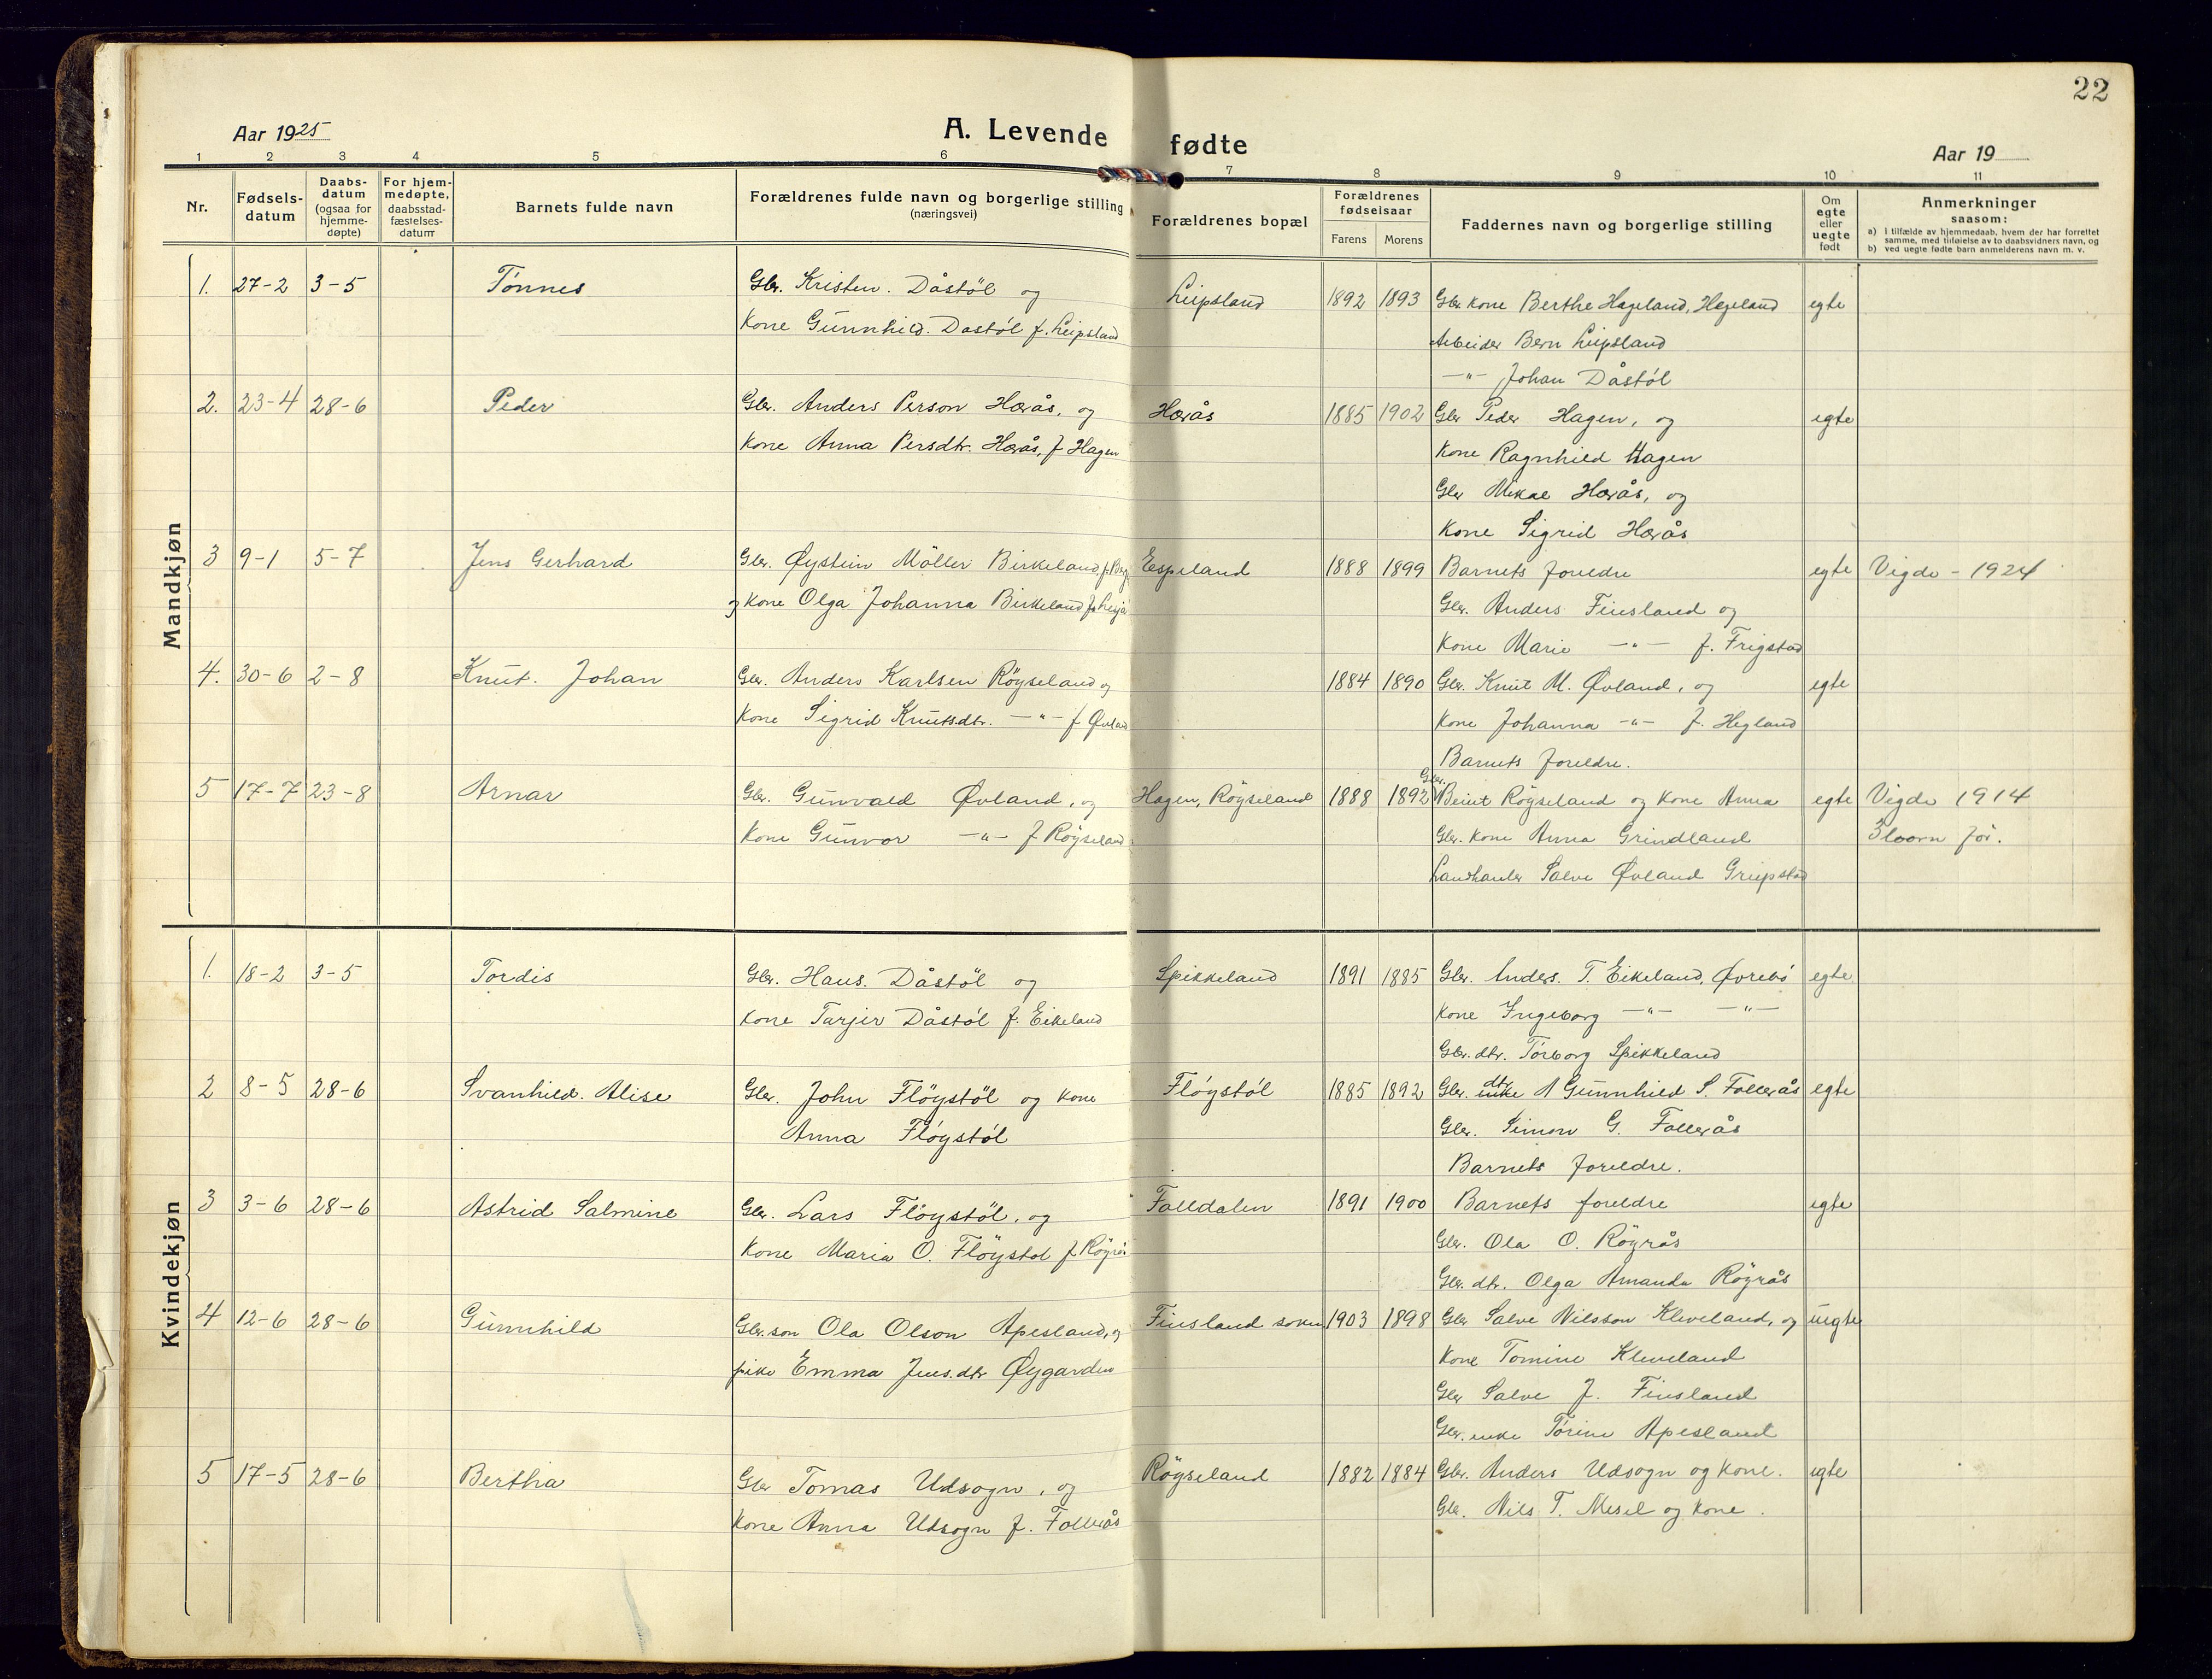 22
Aar 1925
A. Levende fødte
Aar 19
1 2 3 4 5 6 7 8 9 10 11
Nr.
Fødsels-
datum
Daabs-
datum
(ogsaa for
hjemme-
døpte)
For hjem-
medøpte,
daabsstad-
fæstelses-
datum
Barnets fulde navn
Forældrenes fulde navn og borgerlige stilling
(næringsvei)
Forældrenes bopæl
Forældrenes
fødselsaar
Farens Morens
Faddernes navn og borgerlige stilling
Om
egte
eller
uegte
født
Anmerkninger
saasom:
a) i tilfælde av hjemmedaab, hvem der har forrettet
samme, med tilføielse av to daabsvidners navn, og
b) ved uegte fødte barn anmelderens navn m. v.
Mandkjøn
1. 27-2 3-5 Tönnes Gbr. Kristen. Dåstöl og Leipsland 1892 1893 Gbr. kone Berthe Hageland, Hegeland egte
Kone Gunnhild. Dastöl f. Leipsland Arbeider Bern Leipsland
-"- Johan Dåstöl
2. 23-4 28-6 Peder Gbr. Anders Person Hærås, og Hærås 1885 1902 Gbr Peder Hagen, og egte
Kone Anna Persdtr. Hærås, f Hagen Kone Ragnhild Hagen
Gbr Mikal Hærås, og
Kone Sigrid Hærås
3 9-1 5-7 Jens Gerhard Gbr. Øystein Möller Birkeland, f. Espeland 1888 1899 Barnets foreldre egte Vigde - 1924
og Kone Olga Johanna Birkeland f. Gbr. Anders Finsland og
Kone Marie -"- f. Frigstad
4. 30-6 2-8 Knut. Johan Gbr. Anders Karlsen Röyseland og 1884 1890 Gbr. Knut M. Øvland, og egte
Kone Sigrid Knutsdtr. -"- f Øvland Kone Johanna -"- f. Hegland
Barnets foreldre.
5 17-7 23-8 Arnar Gbr. Gunvald Øvland, og Hagen, Röyseland 1888 1892 Gbr. Beint Röyseland og Kone Anna egte Vigde 1914
Kone Gunvor -"- f Röyseland Gbr. Kone Anna Grindland 3 born för.
Landhanler Salve Øvland Greipstad
Kvindekjøn
1. 18-2 3-5 Tordis Gbr. Hans. Dåstöl og Spikkeland 1891 1885 Gbr. Anders. T. Eikeland, Øvrebö egte.
Kone Tarjer Dåstöl f. Eikeland Kone Ingeborg -"- -"-
Gbr. dtr. Torborg Spikkeland
2 8-5 28-6 Svanhild. Alise Gbr. John Flöystöl og kone Flöystöl 1885 1892 Gbr. dtr Gunnhild S. Follerås egte
Anna Flöystöl Gbr. Simon G. Follerås
Barnets foreldre.
3 3-6 28-6 Astrid Salmine Gbr. Lars Flöystöl, og Folldalen 1891 1900 Barnets foreldre egte
Kone Maria O. Flöystol f Röyrås Gbr. Ola O. Röyrås
Gbr. dtr. Olga Amanda Röyrås
4 12-6 28-6 Gunnhild Gbr. son Ola Olson Apesland, og Finsland sokn 1903 1898 Gbr Salve Nilsson Kleveland, og uegte
pike Emma Jens.dtr Øygarden Kone Tomine Kleveland
Gbr Salve J. Finsland
Gbr. enke Torine Apesland
5 17-5 28-6 Bertha Gbr Tomas Udsogn, og Röyseland 1882 1884 Gbr. Anders Udsogn og kone. egte
Kone Anna Udsogn f. Follerås Gbr. Nils T. Mesel og kone.